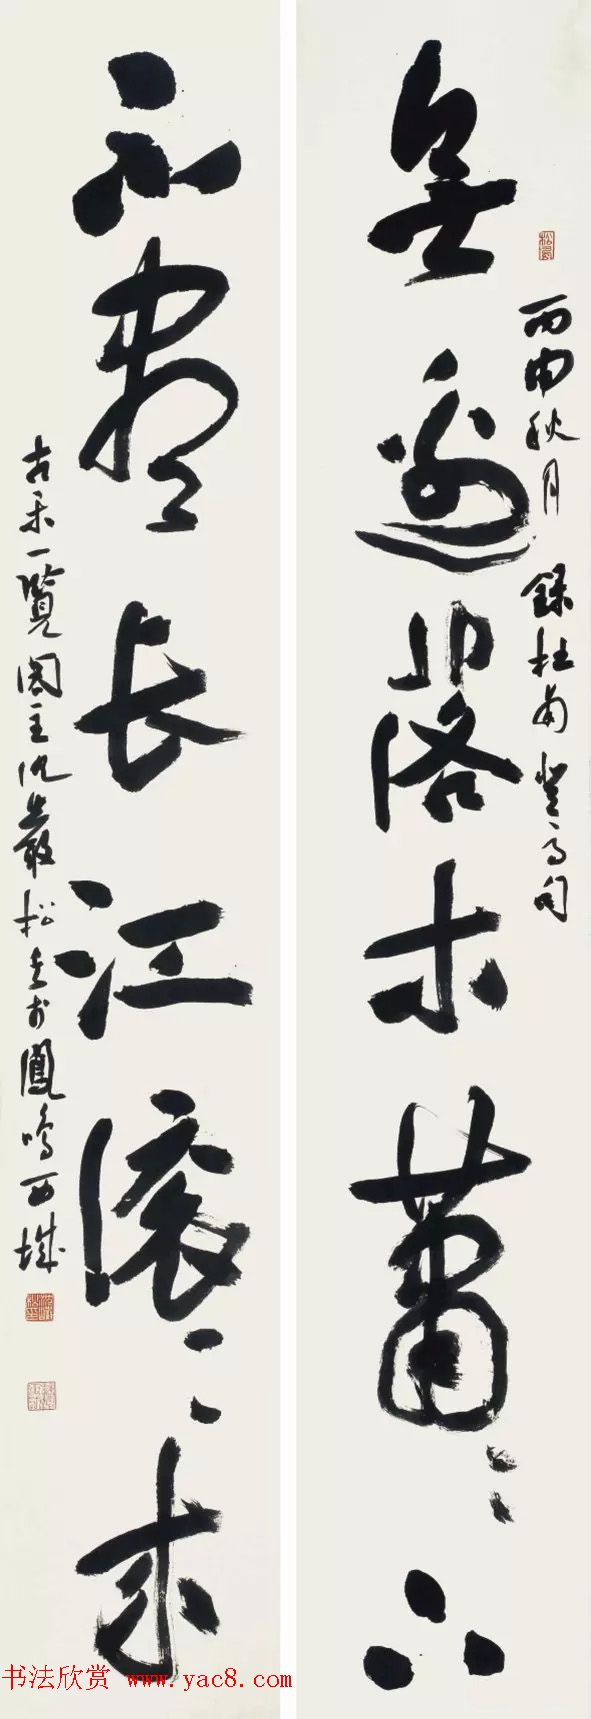 丙申秋月 錄杜甫登高句
無邊落木蕭〻下
不盡長江滚〻来
古禾一覽閣主沈巖松書於鳳鳴西城
书法欣赏 www.yac8.com